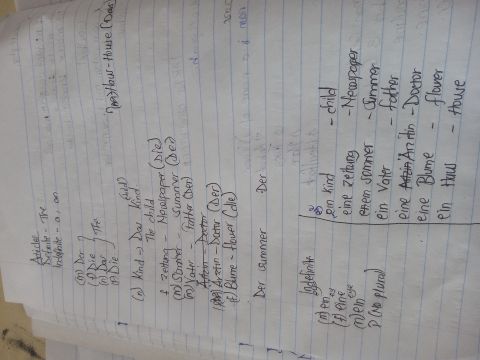 Articles
Definite - The
Indefinite - a, an
(m) Der
(f) Die
(n) Das
(p) Die
The
(n) Kind → Das Kind
The child
f Zeitung - Newspaper (Die)
(m) Sommer - Summer (Der)
(m) Vater - Father (Der)
Doctor
Ärztin - Doctor
f) Blume - Flower (die)
Haus - House (Das)
Der summer Der
Indefinite
(m) ein
(f) eine
(n) ein
P (No plural)
ein kind - child
eine Zeitung - Newspaper
sommer - Summer
ein Vater - Father
eine Ärztin - Doctor
eine Blume - flower
ein Haus - House